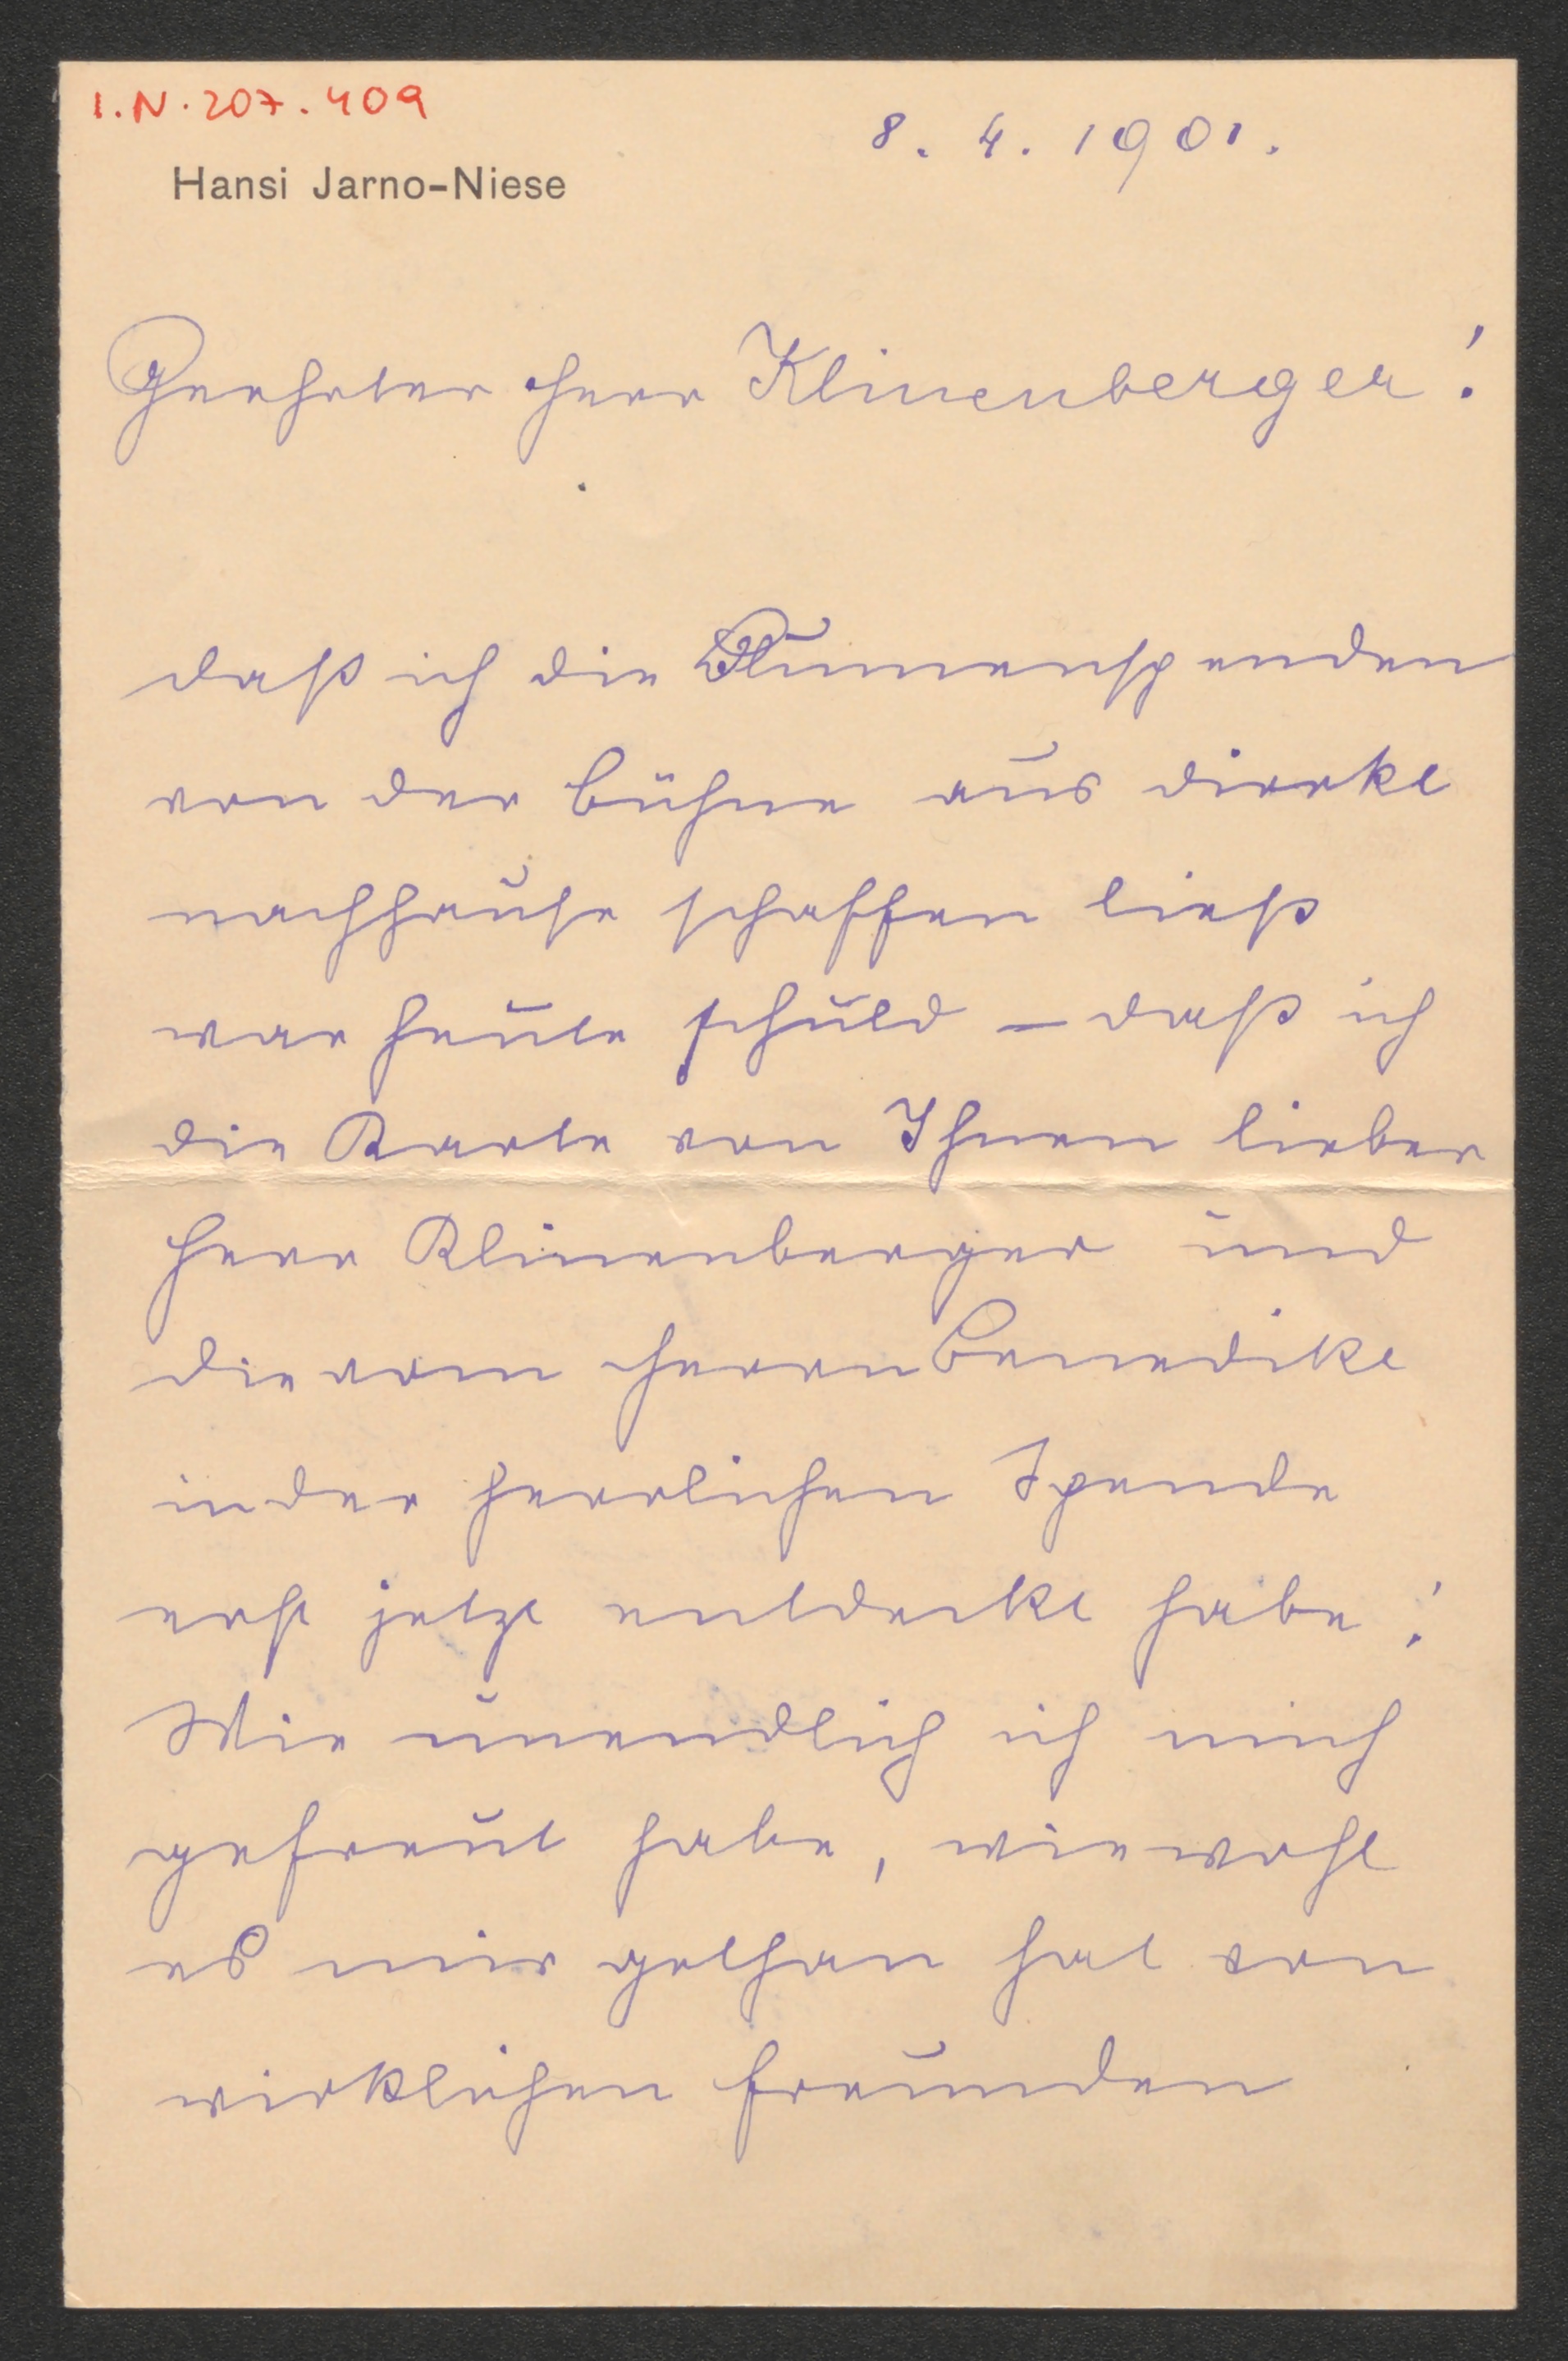 I.N. 207.409
8. 4. 1901.
Hansi Jarno-Niese
Geehrter Herr Klinenberger!
daß ich die Blumenspenden
von der Bühne aus direkt
nachhause schaffen ließ
war heute schuld – daß ich
die Karte von Ihnen lieber
Herr Klinenberger und
die vom Herrn Benedikt
in der herrlichen Spende
erst jetzt entdeckt habe!
Wie unendlich ich mich
gefreut habe, wie wohl
es mir gethan hat von
wirklichen Freunden